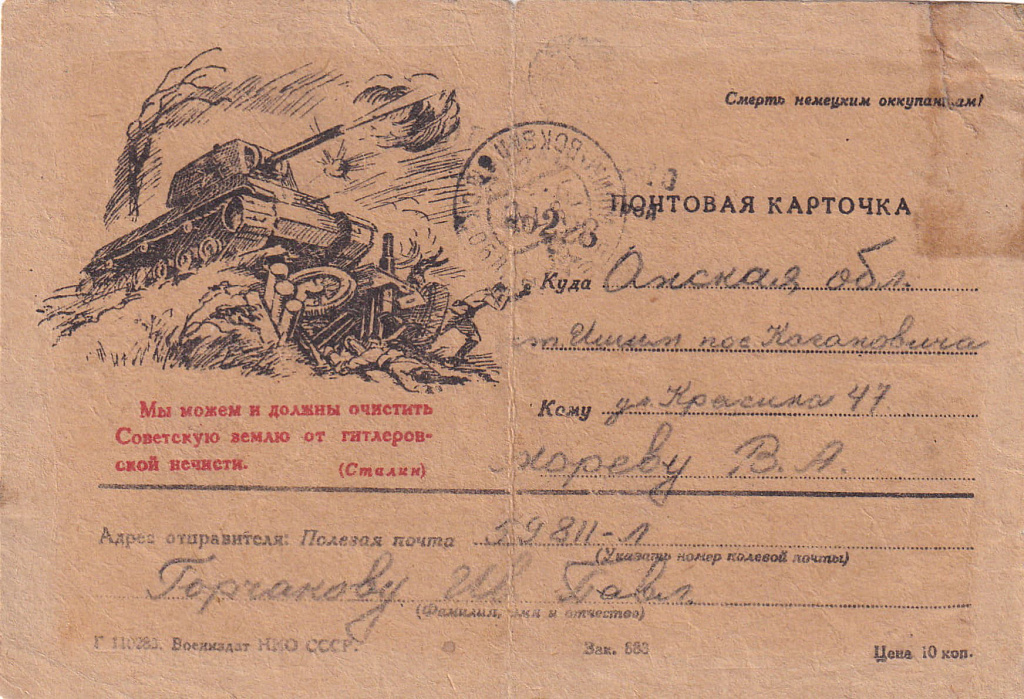 Смерть немецким оккупантам!
ПОЧТОВАЯ КАРТОЧКА
Куда Омская обл.
ст Ишим пос Кагановича
Кому ул Красина 47
В. А.
Мы можем и должны очистить
Советскую землю от гитлеров-
ской нечисти. (Сталин)
Адрес отправителя: Полевая почта 59811-Л
(Указать номер полевой почты)
Горчакову Ив Павл.
(Фамилия, имя и отчество)
Г 110283. Воениздат НКО СССР.
Зак. 883
Цена 10 коп.